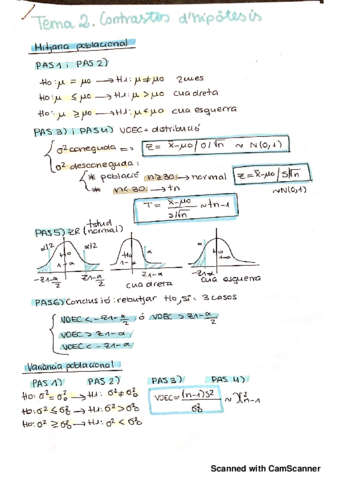 Tema 2. Contrastos d'hipòtesis
Mitjana poblacional
PAS 1 i PAS 2)
H0: μ = μ0 → H1: μ ≠ μ0 2 cues
H0: μ ≤ μ0 → H1: μ > μ0 cua dreta
H0: μ ≥ μ0 → H1: μ < μ0 cua esquerra
PAS 3) i PAS 4) VOEC + distribució
σ² coneguda => Z = x̄-μ0 / σ/√n ~ N(0,1)
σ² desconeguda:
* població n≥30 → normal Z = x̄-μ0 / S/√n
* n<30 → tn ~N(0,1)
T = x̄-μ0 / S/√n ~ tn-1
PAS 5) ZR (normal) tstud
α/2 H0 α/2 H0 α α H0
1-α 1-α
-Z1-α/2 Z1-α/2 Z1-α -Z1-α
cua dreta cua esquerra
PAS 6) Conclusió: rebutjar H0, si: 3 casos
VOEC < -Z1-α/2 ó VOEC > Z1-α/2
VOEC > Z1-α
VOEC < -Z1-α
Variància poblacional
PAS 1) PAS 2) PAS 3) PAS 4)
H0: σ² = σ²0 → H1: σ² ≠ σ²0
H0: σ² ≤ σ²0 → H1: σ² > σ²0 VOEC = (n-1)S² / σ²0 ~ χ²n-1
H0: σ² ≥ σ²0 → H1: σ² < σ²0
Scanned with CamScanner